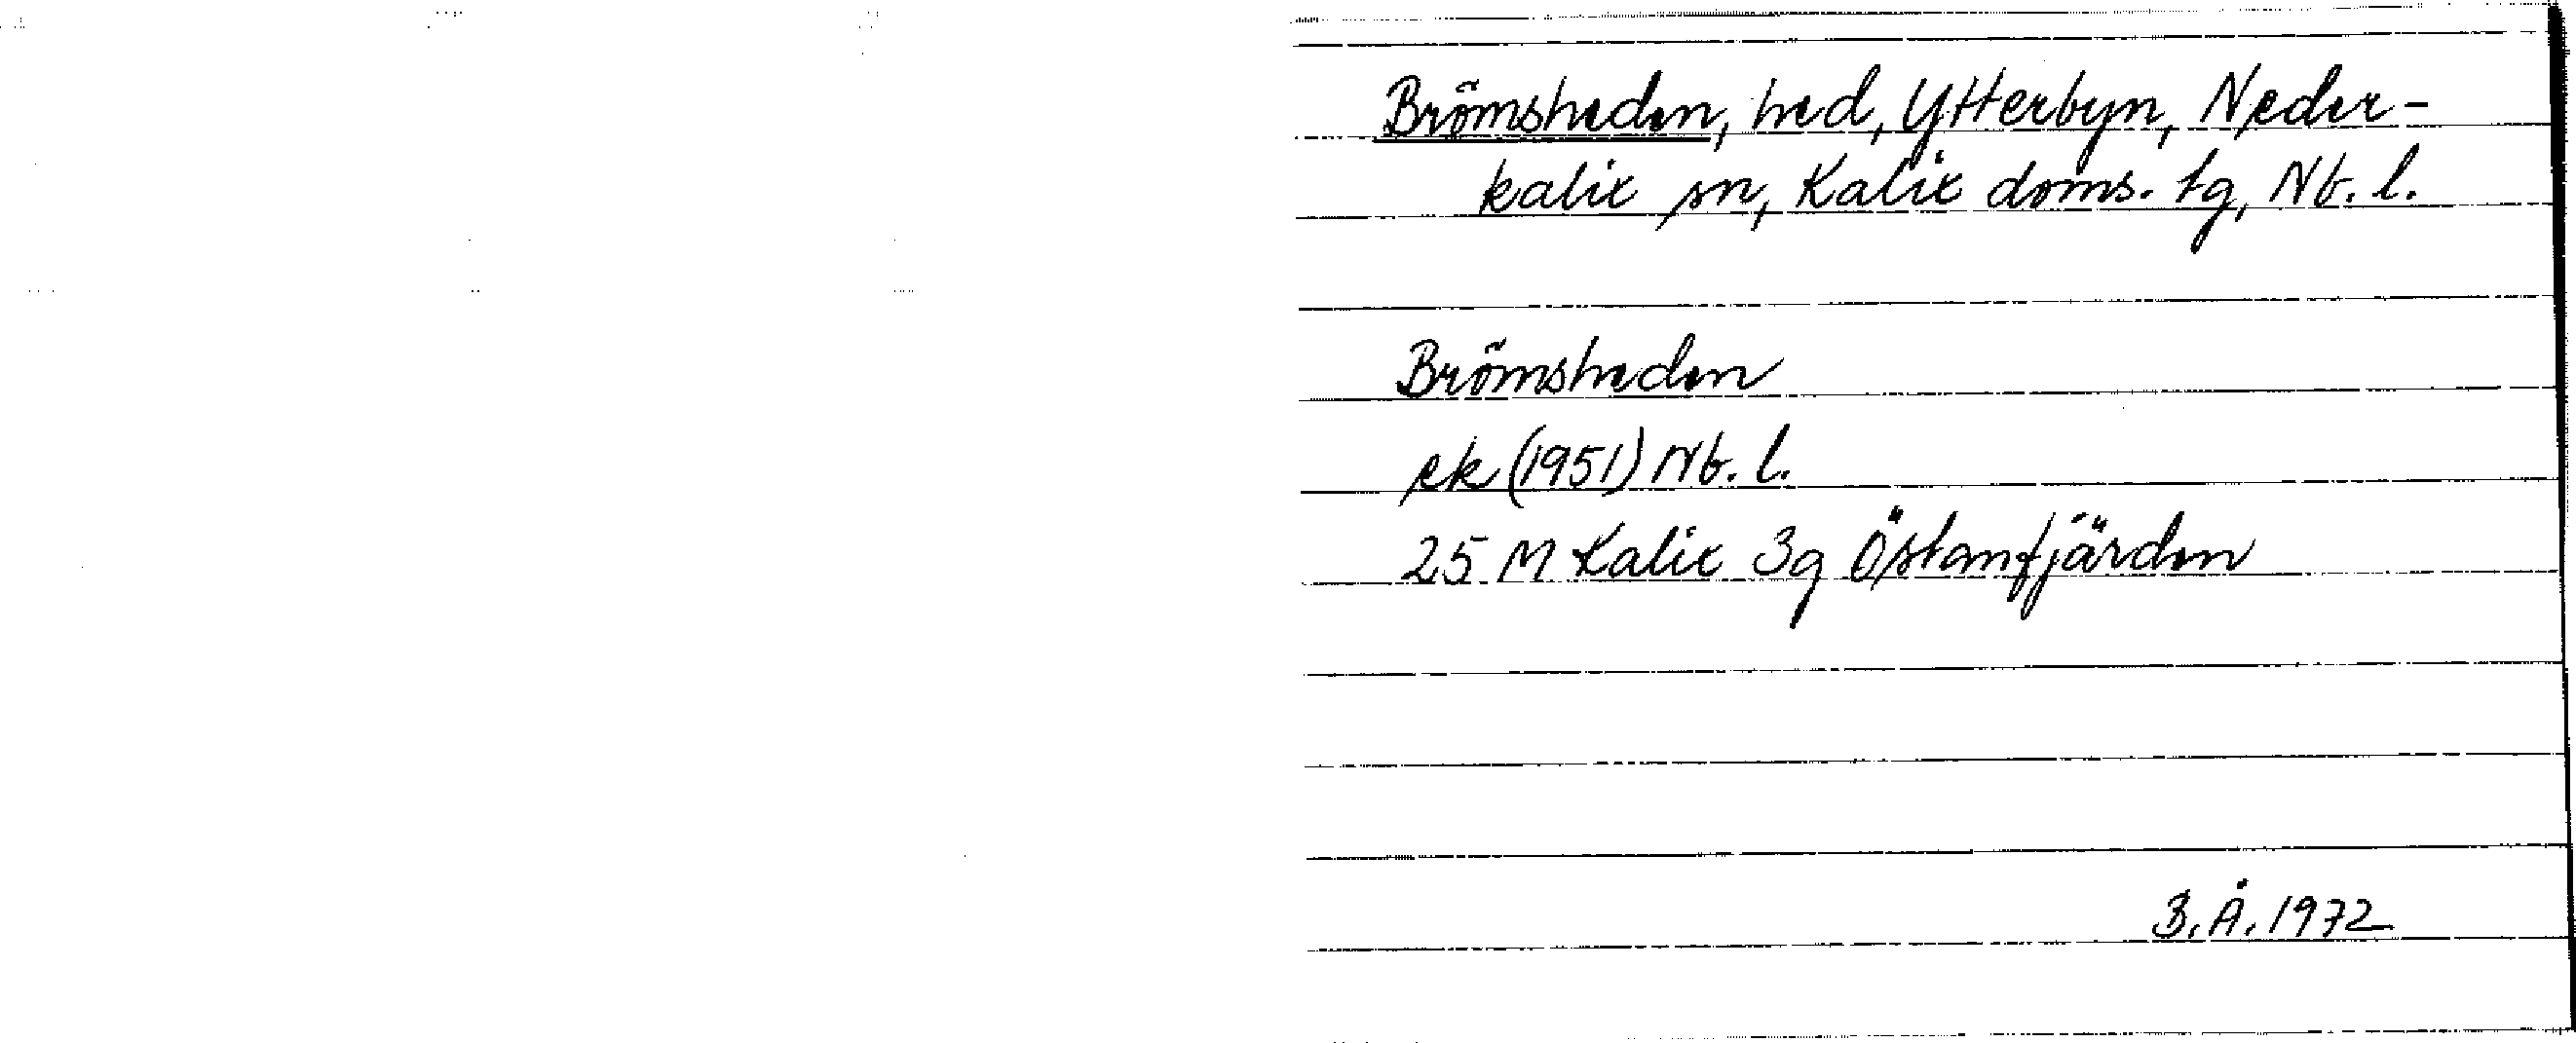 Brömsheden, hed, Ytterbyn, Neder-
kalix sn, Kalix doms. tg, Nb. l.
Brömsheden
ek (1951) Nb. l.
25 M Kalix 3g Östanfjärden
B.Å. 1972